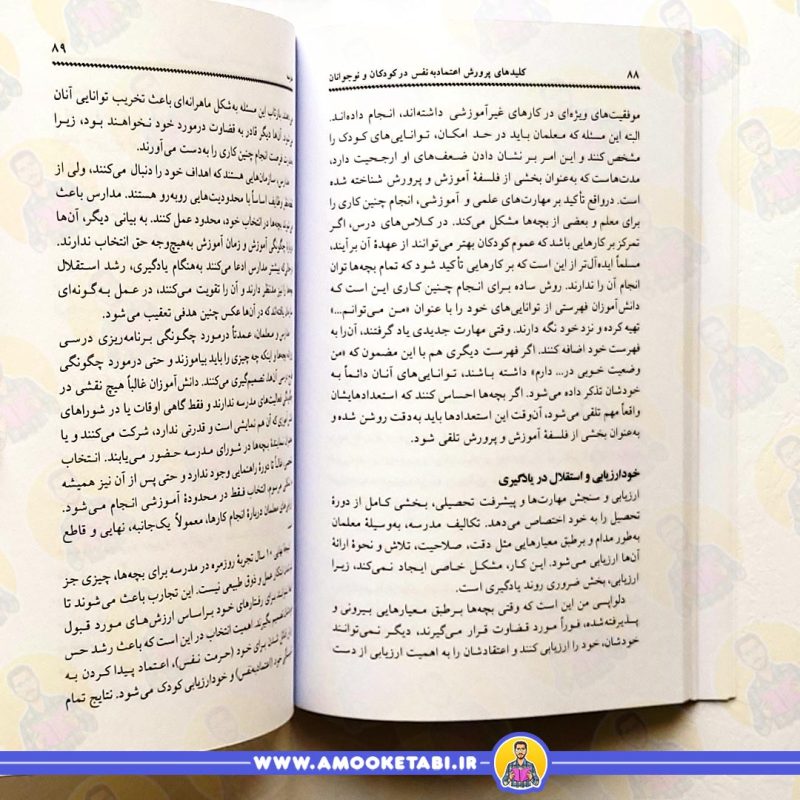 ۸۸
کلیدهای پرورش اعتمادبه‌نفس در کودکان و نوجوانان
موفقیت‌های ویژه‌ای در کارهای غیرآموزشی داشته‌اند، انجام داده‌اند.
البته این مسئله که معلمان باید در حد امکان، توانایی‌های کودک را
مشخص کنند و این امر بر نشان دادن ضعف‌های او ارجحیت دارد،
مدت‌هاست که به‌عنوان بخشی از فلسفهٔ آموزش و پرورش شناخته شده
است. درواقع تأکید بر مهارت‌های علمی و آموزشی، انجام چنین کاری را
برای معلم و بعضی از بچه‌ها مشکل می‌کند. در کلاس‌های درس، اگر
تمرکز بر کارهایی باشد که عموم کودکان بهتر می‌توانند از عهدهٔ آن برآیند،
مسلماً ایده‌آل‌تر از این است که بر کارهایی تأکید شود که تمام بچه‌ها توان
انجام آن را ندارند. روش ساده برای انجام چنین کاری این است که
دانش‌آموزان فهرستی از توانایی‌های خود را با عنوان «من می‌توانم...»
تهیه کرده و نزد خود نگه دارند. وقتی مهارت جدیدی یاد گرفتند، آن‌را به
فهرست خود اضافه کنند. اگر فهرست دیگری هم با این مضمون که «من
وضعیت خوبی در... دارم» داشته باشند، توانایی‌های آنان دائماً به
خودشان تذکر داده می‌شود. اگر بچه‌ها احساس کنند که استعدادهایشان
واقعاً مهم تلقی می‌شود، آن‌وقت این استعدادها باید به‌دقت روشن شده و
به‌عنوان بخشی از فلسفهٔ آموزش و پرورش تلقی شود.
خودارزیابی و استقلال در یادگیری
ارزیابی و سنجش مهارت‌ها و پیشرفت تحصیلی، بخشی کامل از دورهٔ
تحصیل را به خود اختصاص می‌دهد. تکالیف مدرسه، به‌وسیلهٔ معلمان
به‌طور مدام و برطبق معیارهایی مثل دقت، صلاحیت، تلاش و نحوهٔ ارائهٔ
آن‌ها ارزیابی می‌شود. این کار، مشکل خاصی ایجاد نمی‌کند، زیرا
ارزیابی، بخش ضروری روند یادگیری است.
دلواپسی من این است که وقتی بچه‌ها برطبق معیارهایی بیرونی و
پذیرفته‌شده، فوراً مورد قضاوت قرار می‌گیرند، دیگر نمی‌توانند
خودشان، خود را ارزیابی کنند و اعتقادشان را به اهمیت ارزیابی از دست
۸۹
این مسئله به‌شکل ماهرانه‌ای باعث تخریب توانایی آنان
آن‌ها دیگر قادر به قضاوت درمورد خود نخواهند بود، زیرا
فرصت انجام چنین کاری را به‌دست می‌آورند.
سازمان‌هایی هستند که اهداف خود را دنبال می‌کنند، ولی از
وظایف اساساً با محدودیت‌هایی روبه‌رو هستند. مدارس باعث
در انتخاب خود، محدود عمل کنند. به بیانی دیگر، آن‌ها
چگونگی آموزش و زمان آموزش به‌هیچ‌وجه حق انتخاب ندارند.
بیشتر مدارس ادعا می‌کنند به‌هنگام یادگیری، رشد استقلال
را نیز مدنظر دارند و آن را تقویت می‌کنند، در عمل به‌گونه‌ای
که در آن‌ها عکس چنین هدفی تعقیب می‌شود.
و معلمان، عمدتاً درمورد چگونگی برنامه‌ریزی درسی
و اینکه چه چیزی را باید بیاموزند و حتی درمورد چگونگی
آن‌ها، تصمیم‌گیری می‌کنند. دانش‌آموزان غالباً هیچ نقشی در
فعالیت‌های مدرسه ندارند و فقط گاهی اوقات یا در شوراهای
که آن هم نمایشی است و قدرتی ندارد، شرکت می‌کنند و یا
نمایندهٔ بچه‌ها در شورای مدرسه حضور می‌یابند. انتخاب
تا دورهٔ راهنمایی وجود ندارد و حتی پس از آن نیز همیشه
مرسوم، انتخاب فقط در محدودهٔ آموزشی انجام می‌شود.
معلمان دربارهٔ انجام کارها، معمولاً یک‌جانبه، نهایی و قاطع
۱۰ سال تجربهٔ روزمره در مدرسه برای بچه‌ها، چیزی جز
عمل و ذوق طبیعی نیست. این تجارب باعث می‌شوند تا
برای رفتارهای خود براساس ارزش‌های مورد قبول
بگیرند. اهمیت انتخاب در این است که باعث رشد حس
شدن برای خود (حرمت نفس)، اعتماد پیدا کردن به
خود (اعتمادبه‌نفس) و خودارزیابی کودک می‌شود. نتایج تمام
WWW.AMOOKETABI.IR